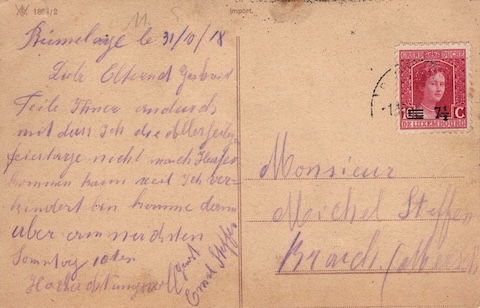 XIX 1894/2
Import.
11. 5.
le 31/10/18
Liebe Eltern & Geschwist
Teile Ihnen andurch
mit dass Ich die Allerheilig
feiertage nicht nach Hause
kommen kann weil Ich ver-
hindert bin komme dann
aber am nächsten
Sonntag
Hochachtungsvoll
Gruss
Ernest Steffen
GRAND DUCHÉ
DE LUXEMBOURG
7½ C
Monsieur
Michel Steffen